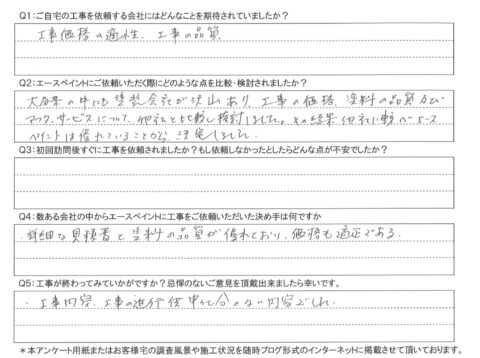 Q1:ご自宅の工事を依頼する会社にはどんなことを期待されていましたか?
工事価格の適性、工事の品質
Q2:エースペイントにご依頼いただく際にどのような点を比較・検討されましたか?
大分県の中にも塗装会社が沢山あり、工事の価格、塗料の品質及び
アフターサービスについて、他社と比較し検討しました。その結果他社に較べエース
ペイントは優れていることから、決定しました。
Q3:初回訪問後すぐに工事を依頼されましたか?もし依頼しなかったとしたらどんな点が不安でしたか?
Q4:数ある会社の中からエースペイントに工事をご依頼いただいた決め手は何ですか
・詳細な見積書と塗料の品質が優れており、価格も適正である。
Q5:工事が終わってみていかがですか?忌憚のないご意見を頂戴出来ましたら幸いです。
・工事内容、工事の進行供申し分のない内容でした。
*本アンケート用紙またはお客様宅の調査風景や施工状況を随時ブログ形式のインターネットに掲載させて頂いております。